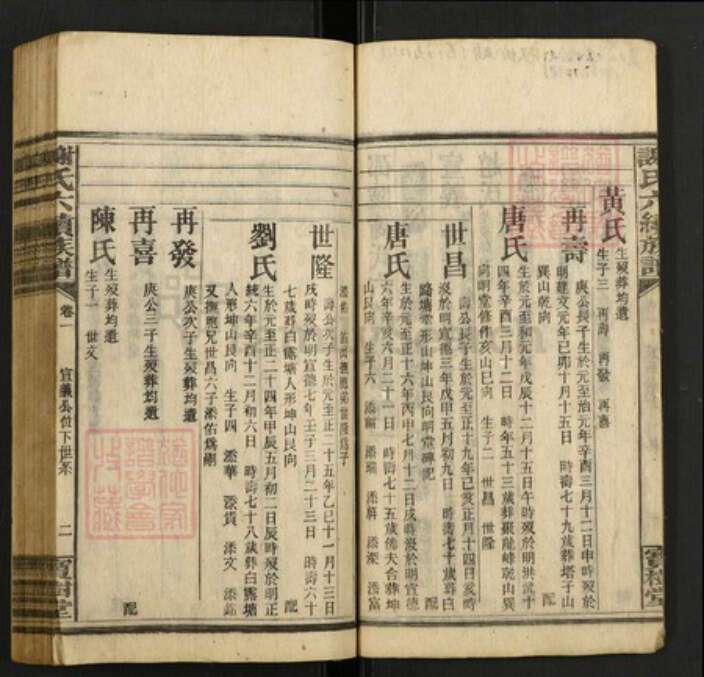 謝氏六續族譜
寶樹堂
黃氏
生歿葬均遺
生子三 再壽 再發 再喜
再壽
庚公長子生於元至治元年辛酉三月十二日申時歿於
明建文元年己卯十月十五日 時壽七十九歲葬塔子山
巽山乾向 配
唐氏
生於元至和元年戊辰十二月十五日午時歿於明洪武十
四年辛酉三月十二日 時年五十三歲葬
山巽
向明堂修作亥山巳向 生子二 世昌 世隆
世昌
壽公長子生於元至正十九年己亥正月十四日亥時
歿於明宣德三年戊申五月初九日 時壽七十歲葬白
露塘堂形山坤山艮向明堂碑記 配
唐氏
生於元至正十六年丙申七月十二日戌時歿於明宣德
六年辛亥六月二十一日 時壽七十五歲偕夫合葬坤
山艮向 生子六 添富
世隆
壽公次子生於元至正二十五年乙巳十一月十三日
戌時歿於明宣德七年壬子三月二十三日 時壽六十
七歲葬白露塘人形坤山艮向 配
劉氏
生於元至正二十四年甲辰五月初二日辰時歿於明正
統六年辛酉十二月初六日 時壽七十八歲葬白露塘
人形坤山艮向 生子四 添華 添貴 添文 添錦
又撫胞兄世昌六子添佑爲嗣
再發
庚公次子生歿葬均遺
再喜
庚公三子生歿葬均遺 配
陳氏
生歿葬均遺
生子一 世文
謝氏六續族譜
卷一
宣義公位下世系
二
寶樹堂